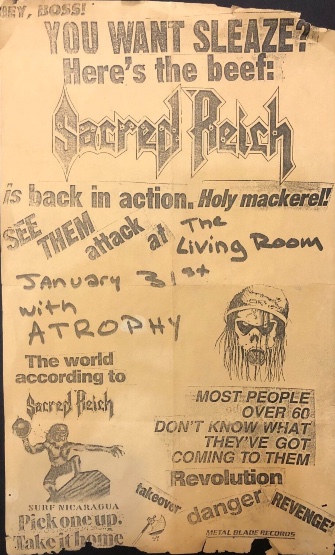 HEY, BOSS!
YOU WANT SLEAZE?
Here's the beef:
Sacred Reich
is back in action. Holy mackerel!!
SEE THEM attack at The Living Room
January 31st
with
ATROPHY
The world
according to
Sacred Reich
SURF NICARAGUA
Pick one up.
Take it home
MOST PEOPLE
OVER 60
DON'T KNOW WHAT
THEY'VE GOT
COMING TO THEM
Revolution
takeover danger REVENGE!
METAL BLADE RECORDS